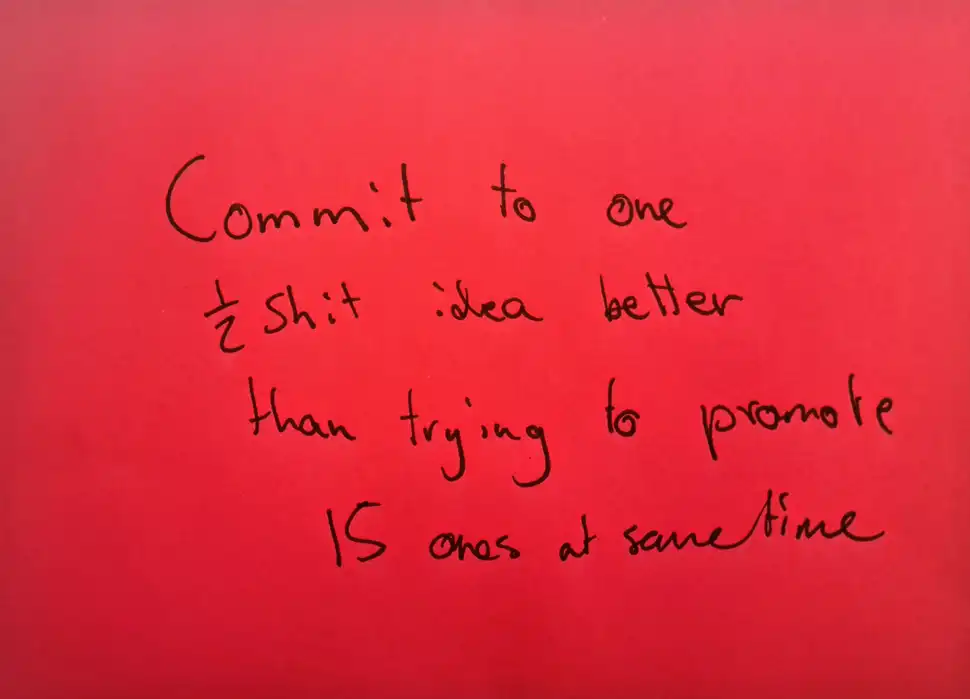 Commit to one
½ shit idea better
than trying to promote
15 ones at same time